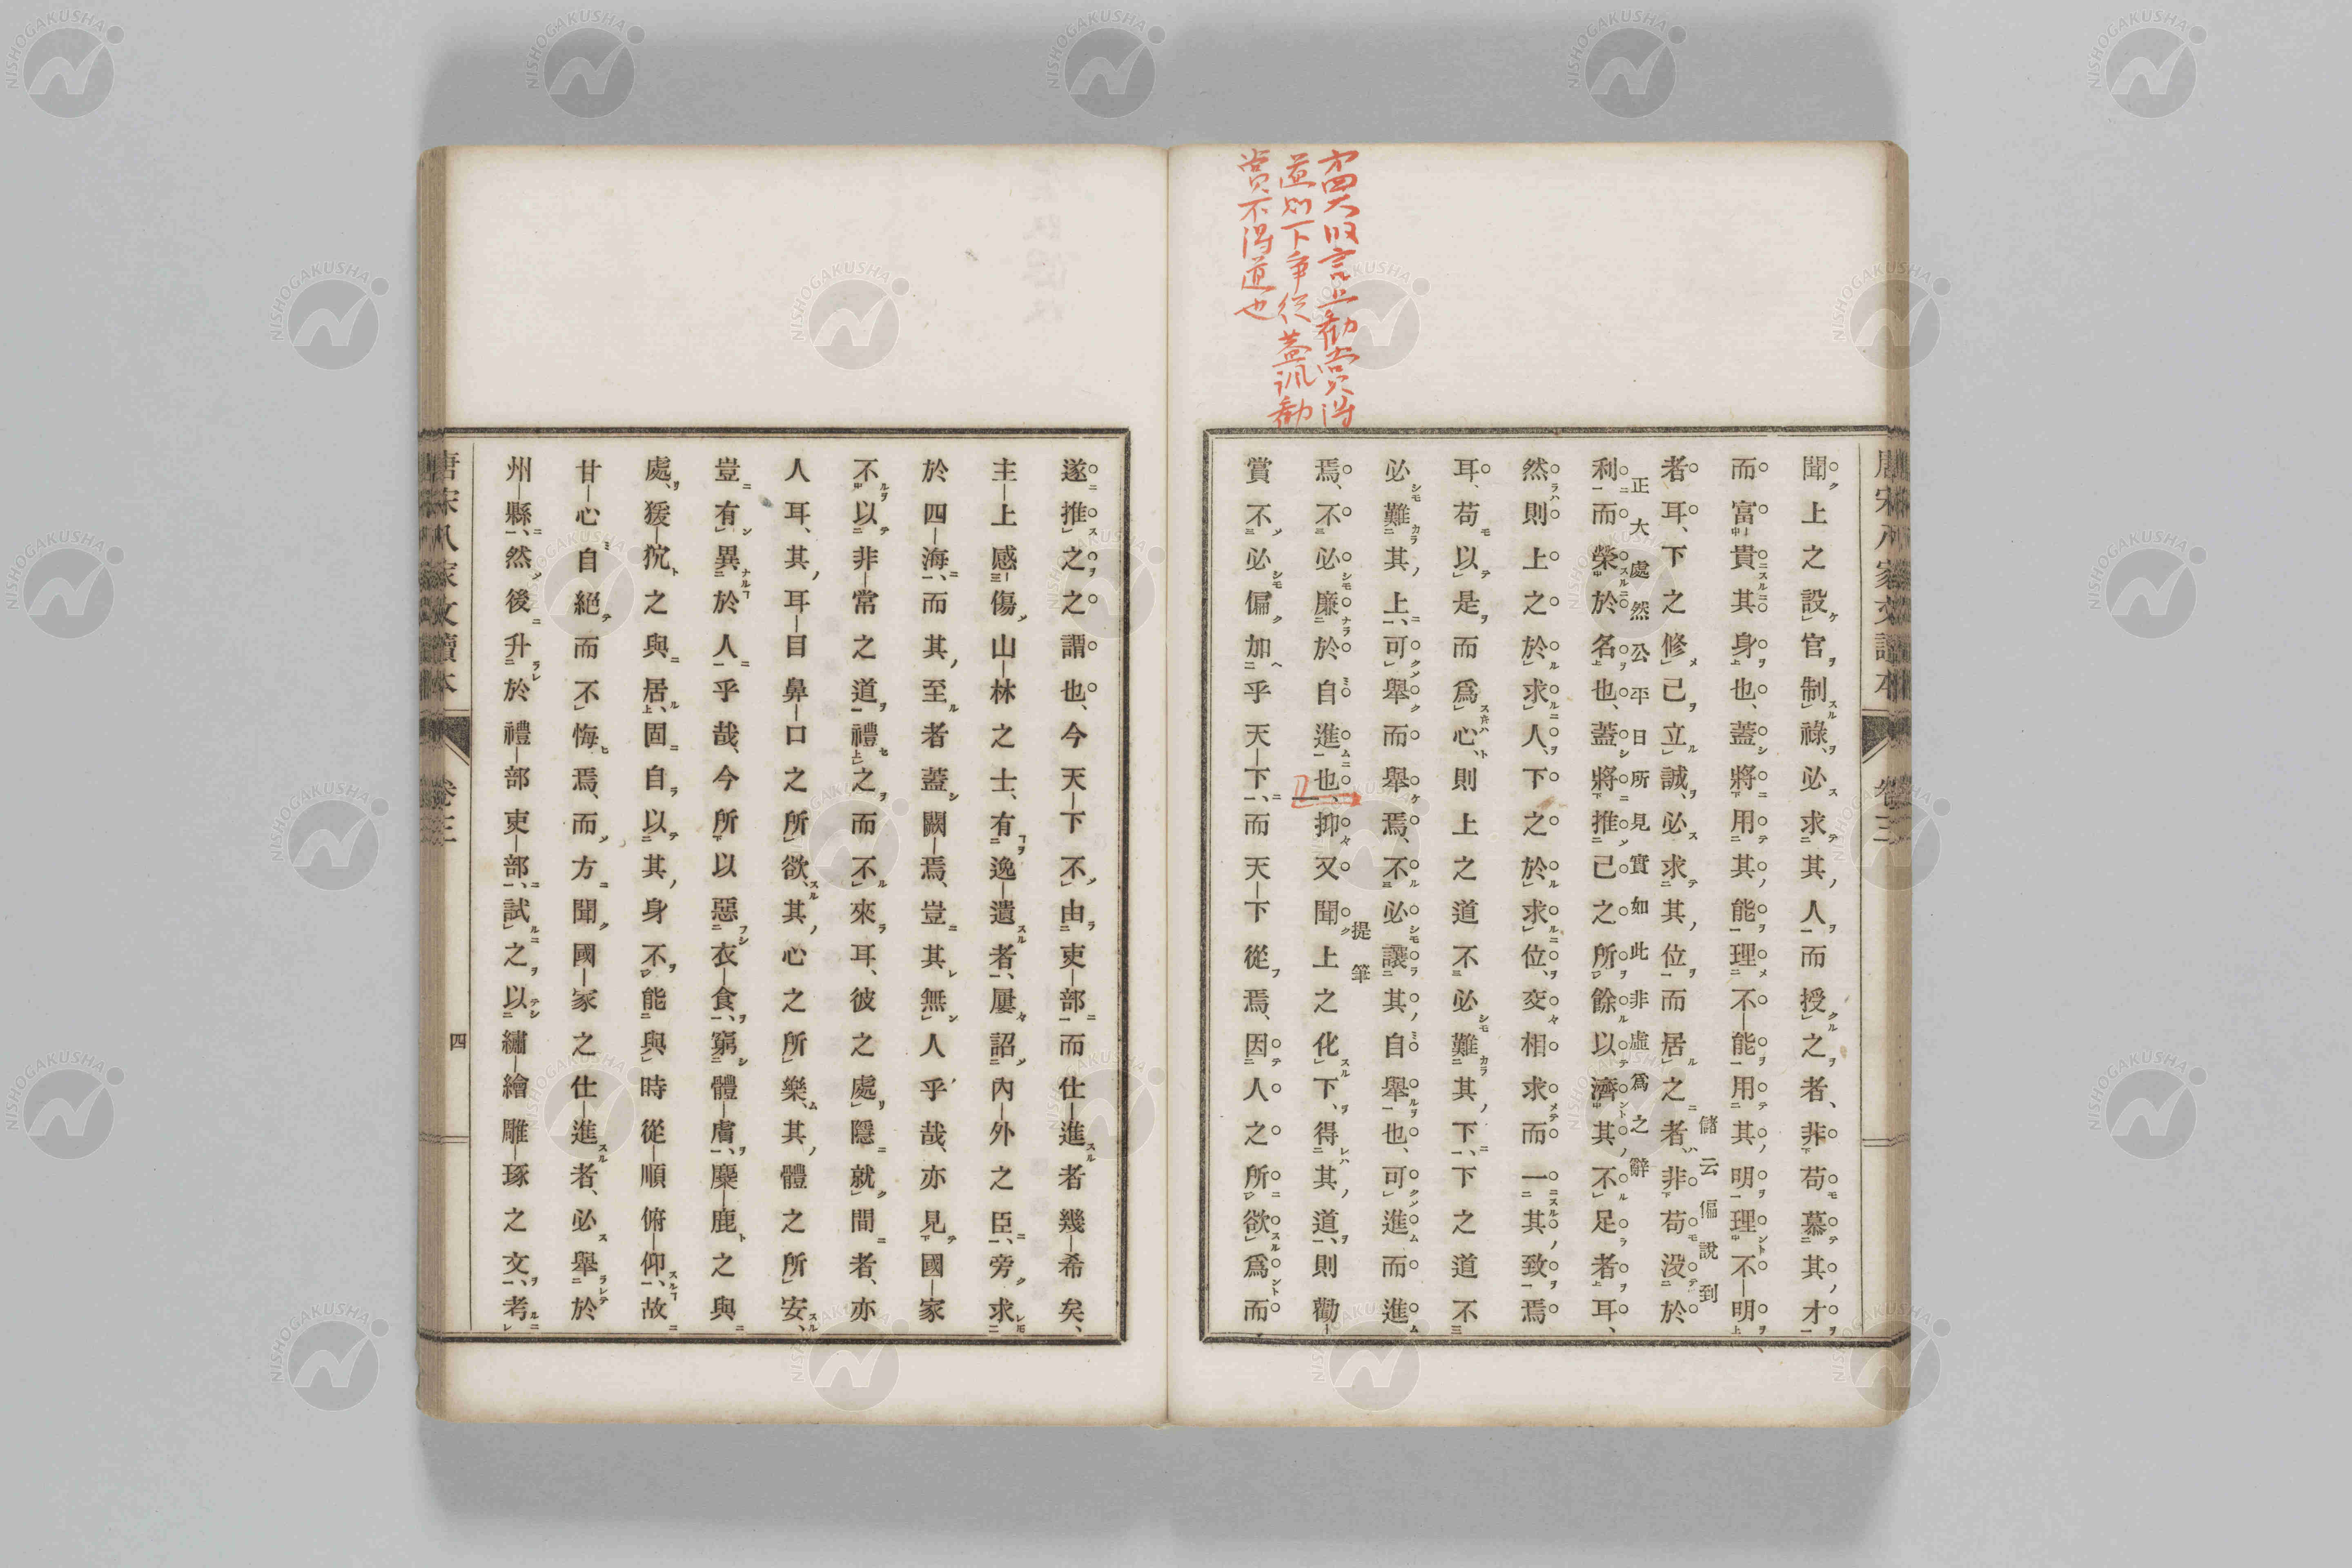 第四大段言上勸賞得
道則下爭從蓋訊勸
賞不得道也
唐宋八家文讀本 卷三
聞上之設官制祿、必求其人而授之者、非苟慕其才
而富貴其身也、蓋將用其能理不能用其明理不明
儲云偏說到
者耳、下之修己立誠、必求其位而居之者、非苟沒於
正大處然公平日所見實如此非虛爲之辭
利而榮於名也、蓋將推己之所餘以濟其不足者耳、
然則上之於求人、下之於求位、交相求而一其致焉
耳、苟以是而爲心、則上之道不必難其下、下之道不
必難其上、可舉而舉焉、不必讓其自舉也、可進而進
提筆
焉、不必廉於自進也、抑又聞上之化下、得其道、則勸
賞不必偏加乎天下、而天下從焉、因人之所欲爲而
遂推之之謂也、今天下不由吏部而仕進者幾希矣、
主上感傷山林之士、有逸遺者、屢詔內外之臣、旁求
於四海、而其至者蓋闕焉、豈其無人乎哉、亦見國家
不以非常之道禮之而不來耳、彼之處隱就閒者、亦
人耳、其耳目鼻口之所欲、其心之所樂、其體之所安、
豈有異於人乎哉、今所以惡衣食、窮體膚、麋鹿之與
處、猨狖之與居、固自以其身不能與時從順俯仰、故
甘心自絕而不悔焉、而方聞國家之仕進者、必舉於
州縣、然後升於禮部吏部、試之以繡繪雕琢之文、考
唐宋八家文讀本 卷三 四